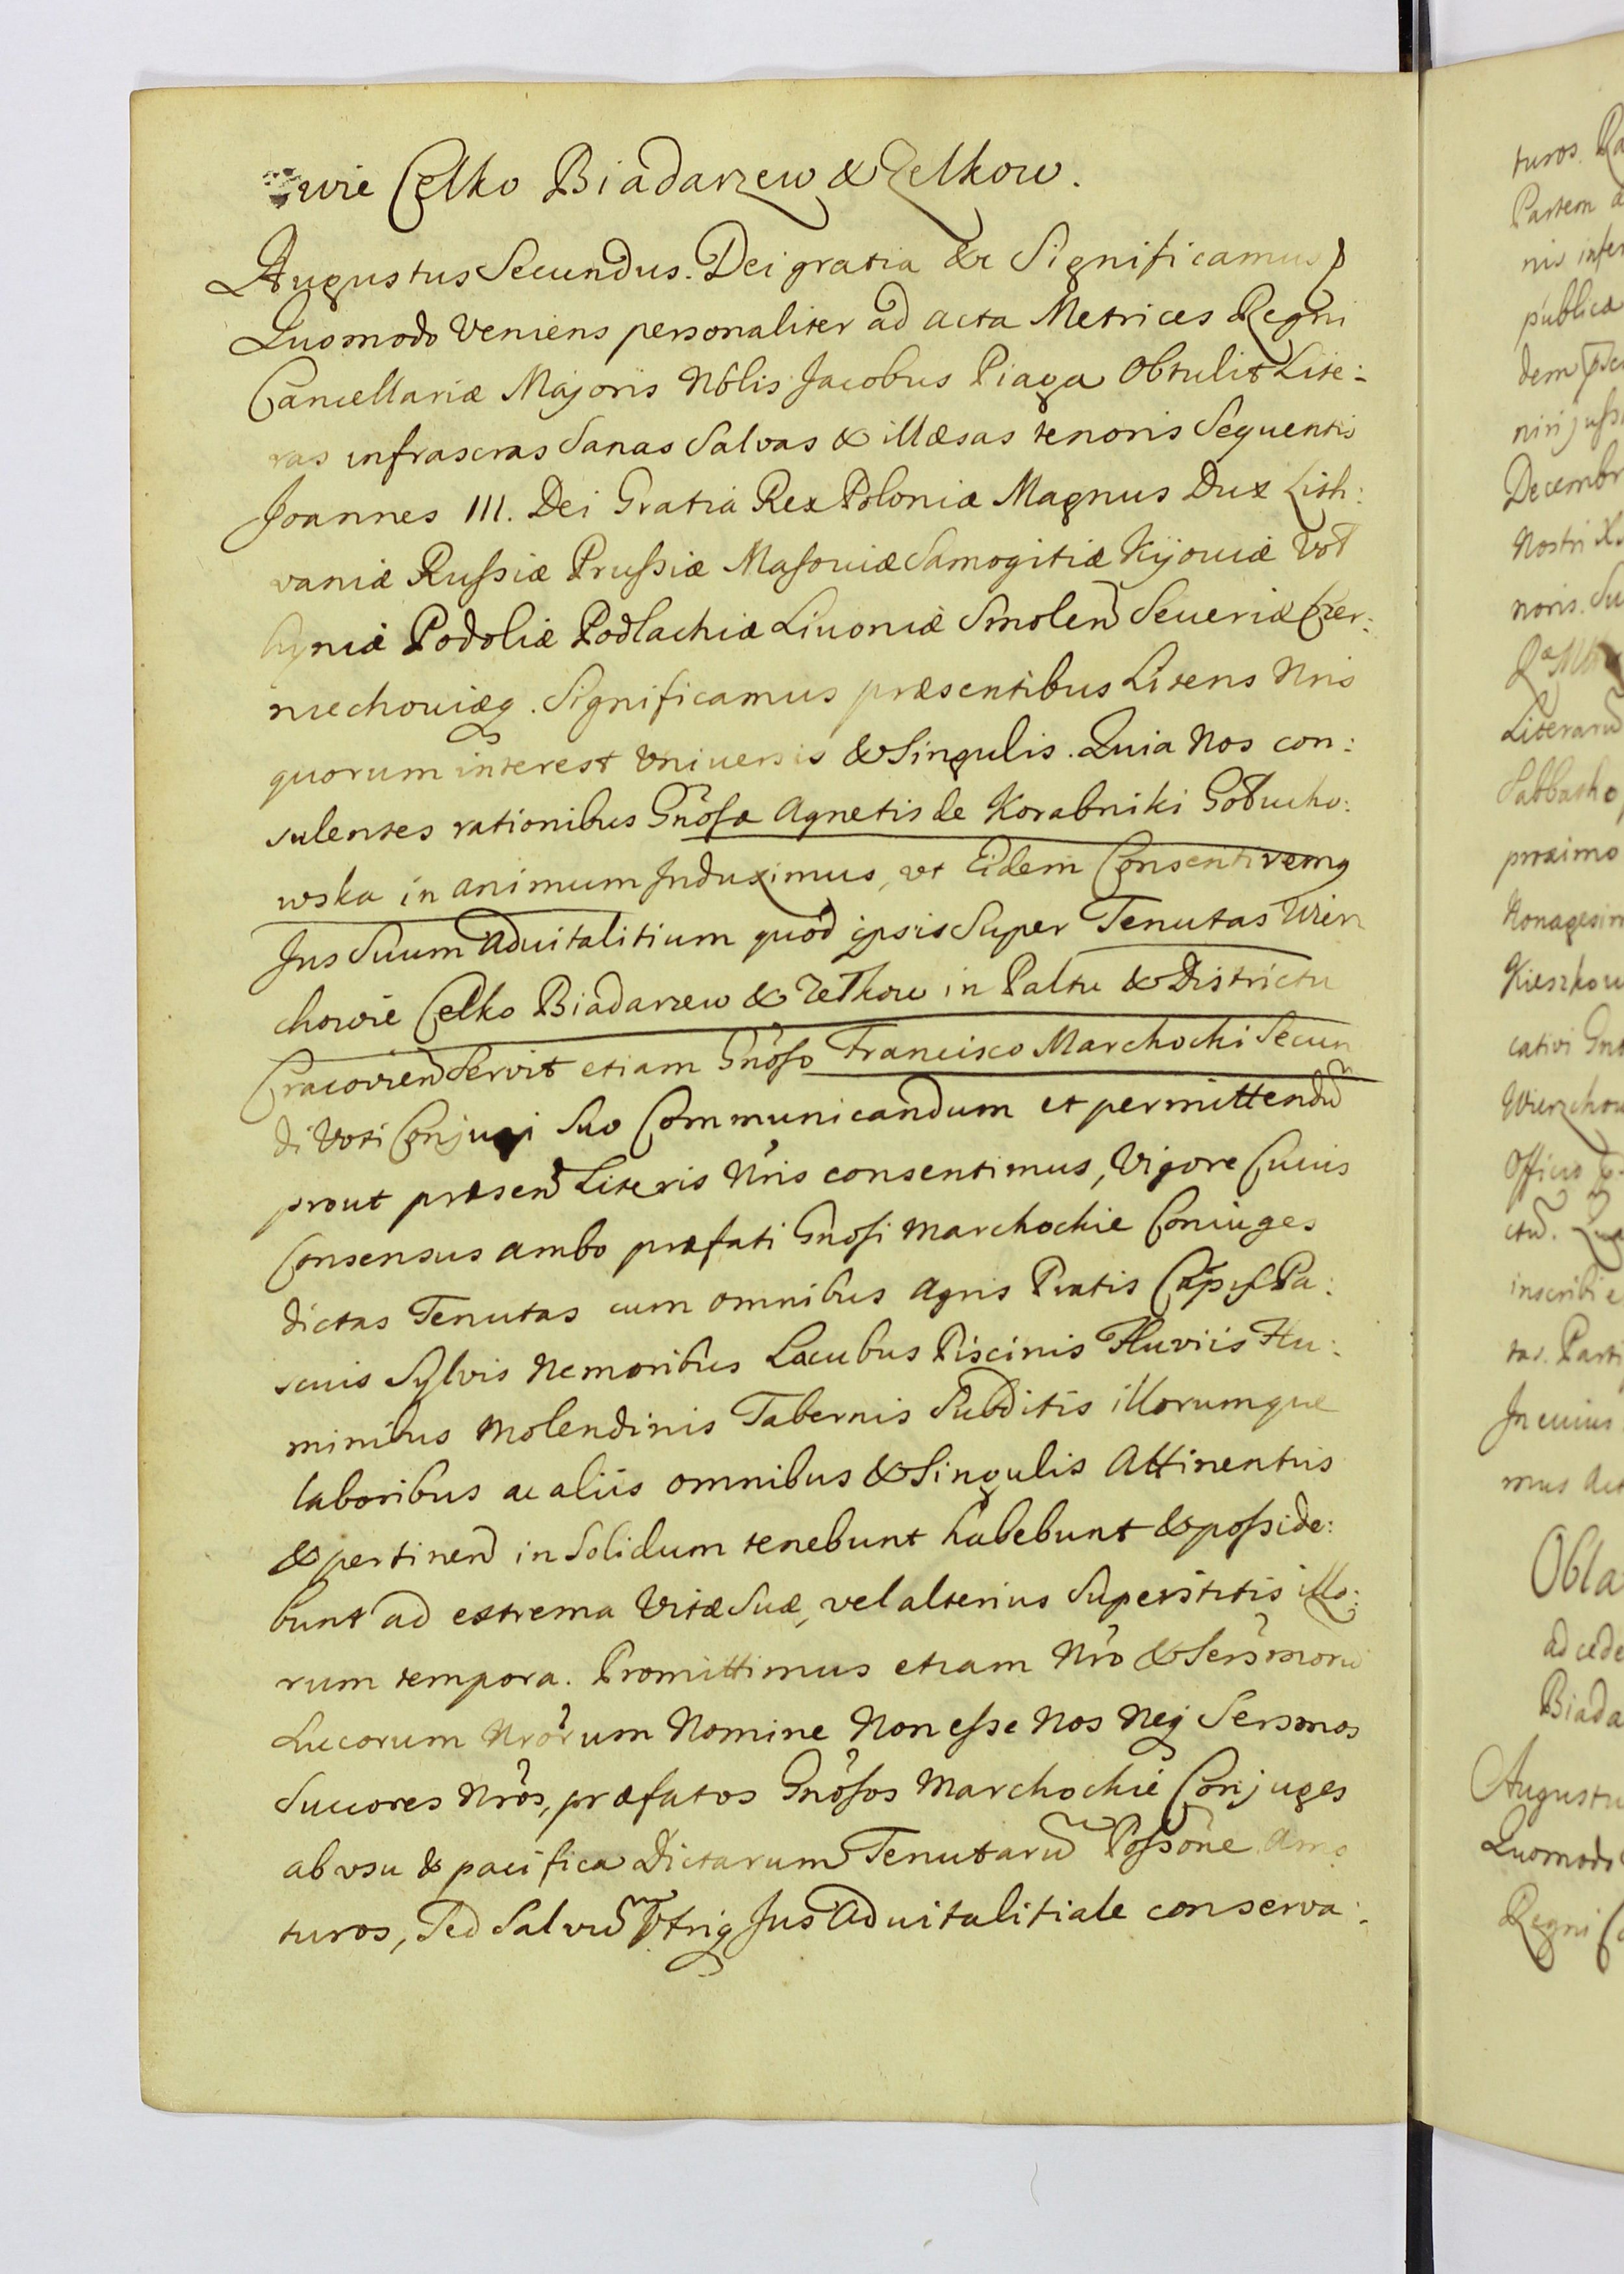 wie Celko Biadarzew & Zelkow.
Augustus Secundus. Dei gratia &c Significamus
Quomodo Veniens personaliter ad acta Metrices Regni
Cancellariæ Majoris Nôlis Jacobus Piaga Obtulit Lite:
ras infrascras Sanas Salvas & illæsas tenoris Sequentis
Joannes III. Dei Gratia Rex Poloniæ Magnus Dux Lith:
vaniæ Russiæ Prussiæ Masoviæ Samogitiæ Kijoviæ Vol
hyniæ Podoliæ Podlachiæ Livoniæ Smolen Severiæ Czer:
niechoviæq. Significamus præsentibus Literis Nris
quorum interest Vniversis & Singulis. Quia Nos con:
sulentes rationibus Gnosæ Agnetis de Korabniki Gołucho:
wska in animum Induximus, vt Eidem Consentiremq
Jus Suum Advitalitium quod ipsis Super Tenutas Wierz
chowie Celko Biadarzew & Zelkow in Paltu & Districtu
Cracovien Servit etiam Gnoso Francisco Marchocki Secun
di Voti Conjugi Suo Communicandum et permittendũ
prout præsen Literis Nris consentimus, Vigore Cuius
Consensus ambo præfati Gnosi Marchockie Coniuges
dictas Tenutas cum omnibus Agris Pratis Campis Pa:
scuis Sylvis Nemoribus Lacubus Piscinis Fluviis Flu:
minibus Molendinis Tabernis Subditis illorumque
laboribus ac aliis omnibus & Singulis Attinentiis
& pertinen in Solidum tenebunt habebunt & posside:
bunt ad extrema Vitæ Suæ, vel alterius Superstitis illo:
rum tempora. Promittimus etiam Nro & Sersmorũ
Succorum Nrorum Nomine Non esse Nos Neq Sersmos
Succores Nros, præfatos Gnosos Marchockie Conjuges
ab vsu & pacifica Dictarum Tenutarũ Possõne Amo
turos, Sed Salvũ Vtriq Jus Advitalitiale conserva:
turos.
Partem
publica
Decembr
Nostri
noris.
Literarũ
Sabbatho
proximo
Nonagesim
Kieszkow
cativi
Wierzchow
Officio
inscribi
Parti
In cuius
mus
Obla
ad cede
Biada
Augustu
Quomodo
Regni